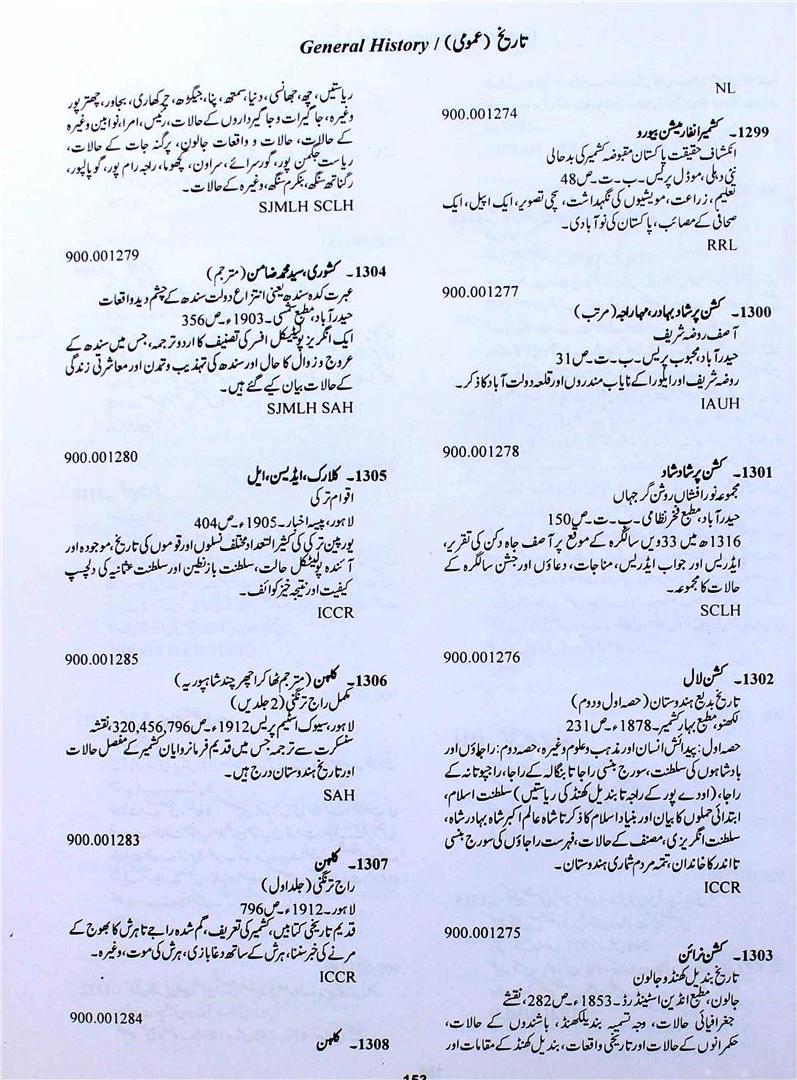 تاریخ (عمومی) / General History
NL
900.001274
1299۔ کشمیر انفارمیشن بیورو
انکشاف حقیقت پاکستان مقبوضہ کشمیر کی بدحالی
نئی دہلی، موڈل پریس۔ ب۔ ت۔ ص 48
تعلیم، زراعت، مویشیوں کی نگہداشت، سچی تصویر، ایک اپیل، ایک
صحافی کے مصائب، پاکستان کی نوآبادی۔
RRL
900.001277
1300۔ کشن پرشاد بہادر، مہاراجہ (مرتب)
آصف روضہ شریف
حیدرآباد، محبوب پریس۔ ب۔ ت۔ ص 31
روضہ شریف اور ایلورا کے نایاب مندروں اور قلعہ دولت آباد کا ذکر۔
IAUH
900.001278
1301۔ کشن پرشاد شاد
مجموعہ نور افشاں روشن گر جہاں
حیدرآباد، مطبع فخر نظامی۔ ب۔ ت۔ ص 150
1316ھ میں 33ویں سالگرہ کے موقع پر آصف جاہ دکن کی تقریر،
ایڈریس اور جواب ایڈریس، مناجات، دعاؤں اور جشن سالگرہ کے
حالات کا مجموعہ۔
SCLH
900.001276
1302۔ کشن لال
تاریخ بدیع ہندوستان (حصہ اول و دوم)
لکھنؤ، مطبع بہار کشمیر۔ 1878ء۔ ص 231
حصہ اول: پیدائش انسان اور مذہب وعلوم وغیرہ، حصہ دوم: راجاؤں اور
بادشاہوں کی سلطنت، سورج بنسی راجا تا بنگالہ کے راجا، راجپوتانہ کے
راجا، (اودے پور کے راجہ تا بندیل کھنڈ کی ریاستیں) سلطنت اسلام،
ابتدائی حملوں کا بیان اور بنیاد اسلام کا ذکر تا شاہ عالم اکبر شاہ بہادر شاہ،
سلطنت انگریزی، مصنف کے حالات، فہرست راجاؤں کی سورج بنسی
تا اندر کا خاندان، تتمہ مردم شماری ہندوستان۔
ICCR
900.001275
1303۔ کشن نرائن
تاریخ بندیل کھنڈ و جالون
جالون، مطبع انڈین اسٹینڈرڈ۔ 1853ء۔ ص 282، نقشے
جغرافیائی حالات، وجہ تسمیہ بندیلکھنڈ، باشندوں کے حالات،
حکمرانوں کے حالات اور تاریخی واقعات، بندیل کھنڈ کے مقامات اور
ریاستیں، جھانسی، دتیا، سمتھر، پنا، چرکھاری، بجاور، چھترپور
وغیرہ، جاگیرات وجاگیرداروں کے حالات، رئیس، امرا، نوابین وغیرہ
کے حالات، حالات و واقعات جالون، پرگنہ جات کے حالات،
ریاست جگمن پور، گورسرائے، سراون، راجہ رام پور، گوپالپور،
رگناتھ سنگھ، بنکرم سنگھ، وغیرہ کے حالات۔
SJMLH SCLH
900.001279
1304۔ کنتوری، سید محمد ضامن (مترجم)
عبرت کدہ سندھ یعنی انتزاع دولت سندھ کے چشم دید واقعات
حیدرآباد، مطبع شمسی۔ 1903ء۔ ص 356
ایک انگریز پولیٹیکل افسر کی تصنیف کا اردو ترجمہ، جس میں سندھ کے
عروج و زوال کا حال اور سندھ کی تہذیب و تمدن اور معاشرتی زندگی
کے حالات بیان کیے گئے ہیں۔
SJMLH SAH
900.001280
1305۔ کلارک، ایڈیسن، ایل
اقوام ترکی
لاہور، پیسہ اخبار۔ 1905ء۔ ص 404
یورپین ترکی کی کثیر التعداد مختلف نسلوں اور قوموں کی تاریخ، موجودہ اور
آئندہ پولیٹیکل حالت، سلطنت بازنطین اور سلطنت عثمانیہ کی دلچسپ
کیفیت اور نتیجہ خیز کوائف۔
ICCR
900.001285
1306۔ کلہن (مترجم ٹھاکر اچھر چند شاہپوریہ)
مکمل راج ترنگنی (2 جلدیں)
لاہور، سیوک اسٹیم پریس 1912ء۔ ص 320,456,796، نقشہ
سنسکرت سے ترجمہ جس میں قدیم فرمانروایان کشمیر کے مفصل حالات
اور تاریخ ہندوستان درج ہیں۔
SAH
900.001283
1307۔ کلہن
راج ترنگنی (جلد اول)
لاہور۔ 1912ء۔ ص 796
قدیم تاریخی کتابیں، کشمیر کی تعریف، گم شدہ راجے تا ہرش کا بھوج کے
مرنے کی خبر سننا، ہرش کے ساتھ دغابازی، ہرش کی موت، وغیرہ۔
ICCR
900.001284
1308۔ کلہن
153